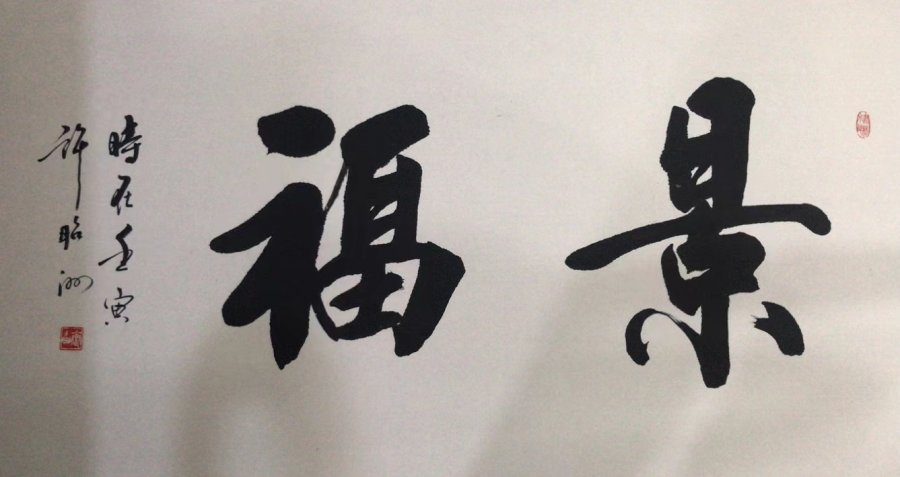 景福
時在壬寅
許昭洲